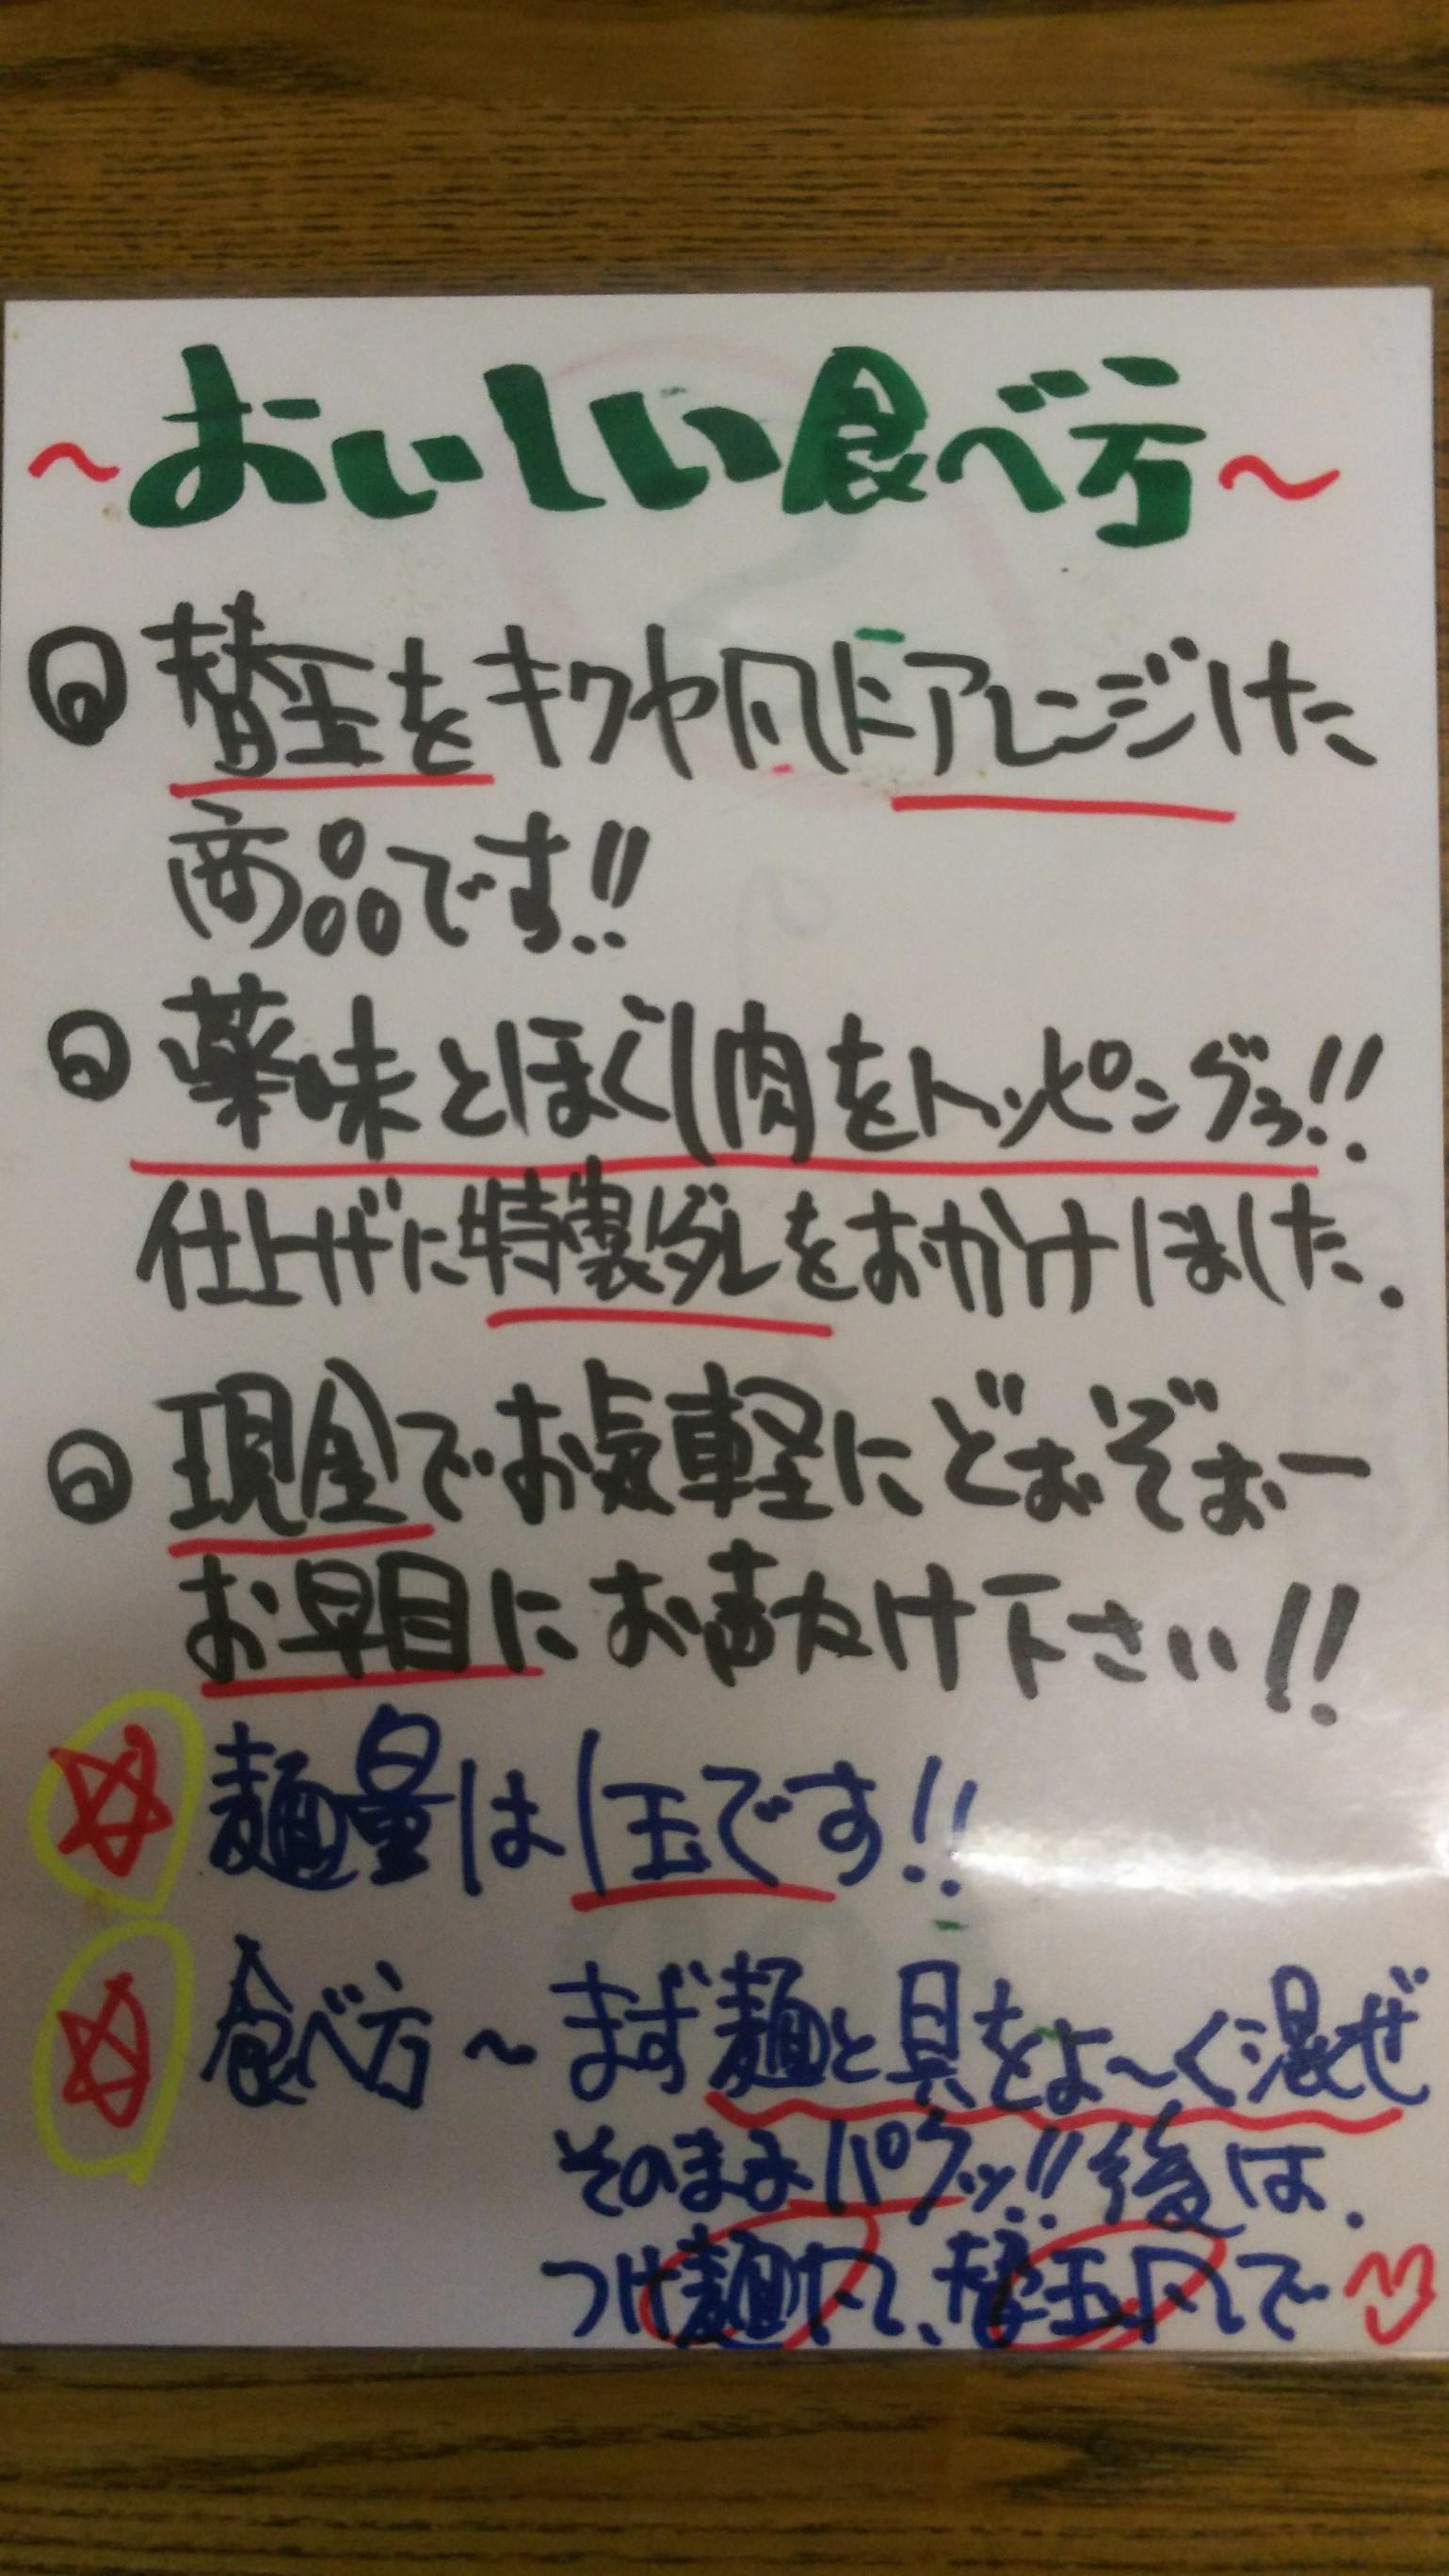 ～おいしい食べ方～
◎ 替玉をキクヤ風にアレンジした
商品です!!
◎ 薬味とほぐし肉をトッピングぅ!!
仕上げに特製ダレをおかけしました.
◎ 現金でお気軽にどぉぞぉー
お早目にお声かけ下さい!!
☆ 麺量は1玉です!!
☆ 食べ方～まず麺と具をよ～く混ぜ
そのままパクッ!!後は.
つけ麺風、替玉風で♡